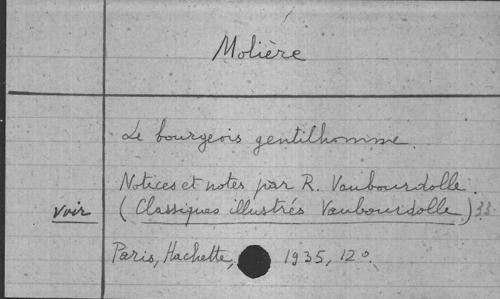 Molière
Le bourgeois gentilhomme.
Notices et notes par R. Vaubourdolle.
voir (Classiques illustrés Vaubourdolle) 33
Paris, Hachette, 1935, 12°.